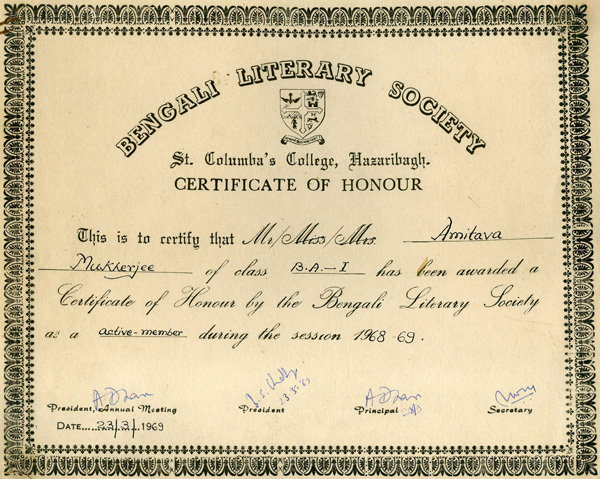 BENGALI LITERARY SOCIETY
St. Columba's College, Hazaribagh.
CERTIFICATE OF HONOUR
This is to certify that Mr/Miss/Mrs. Amitava
Mukherjee of class B.A-I has been awarded a
Certificate of Honour by the Bengali Literary Society
as a active-member during the session 1968-69.
President, Annual Meeting President Principal Secretary
DATE.....23/3/1969